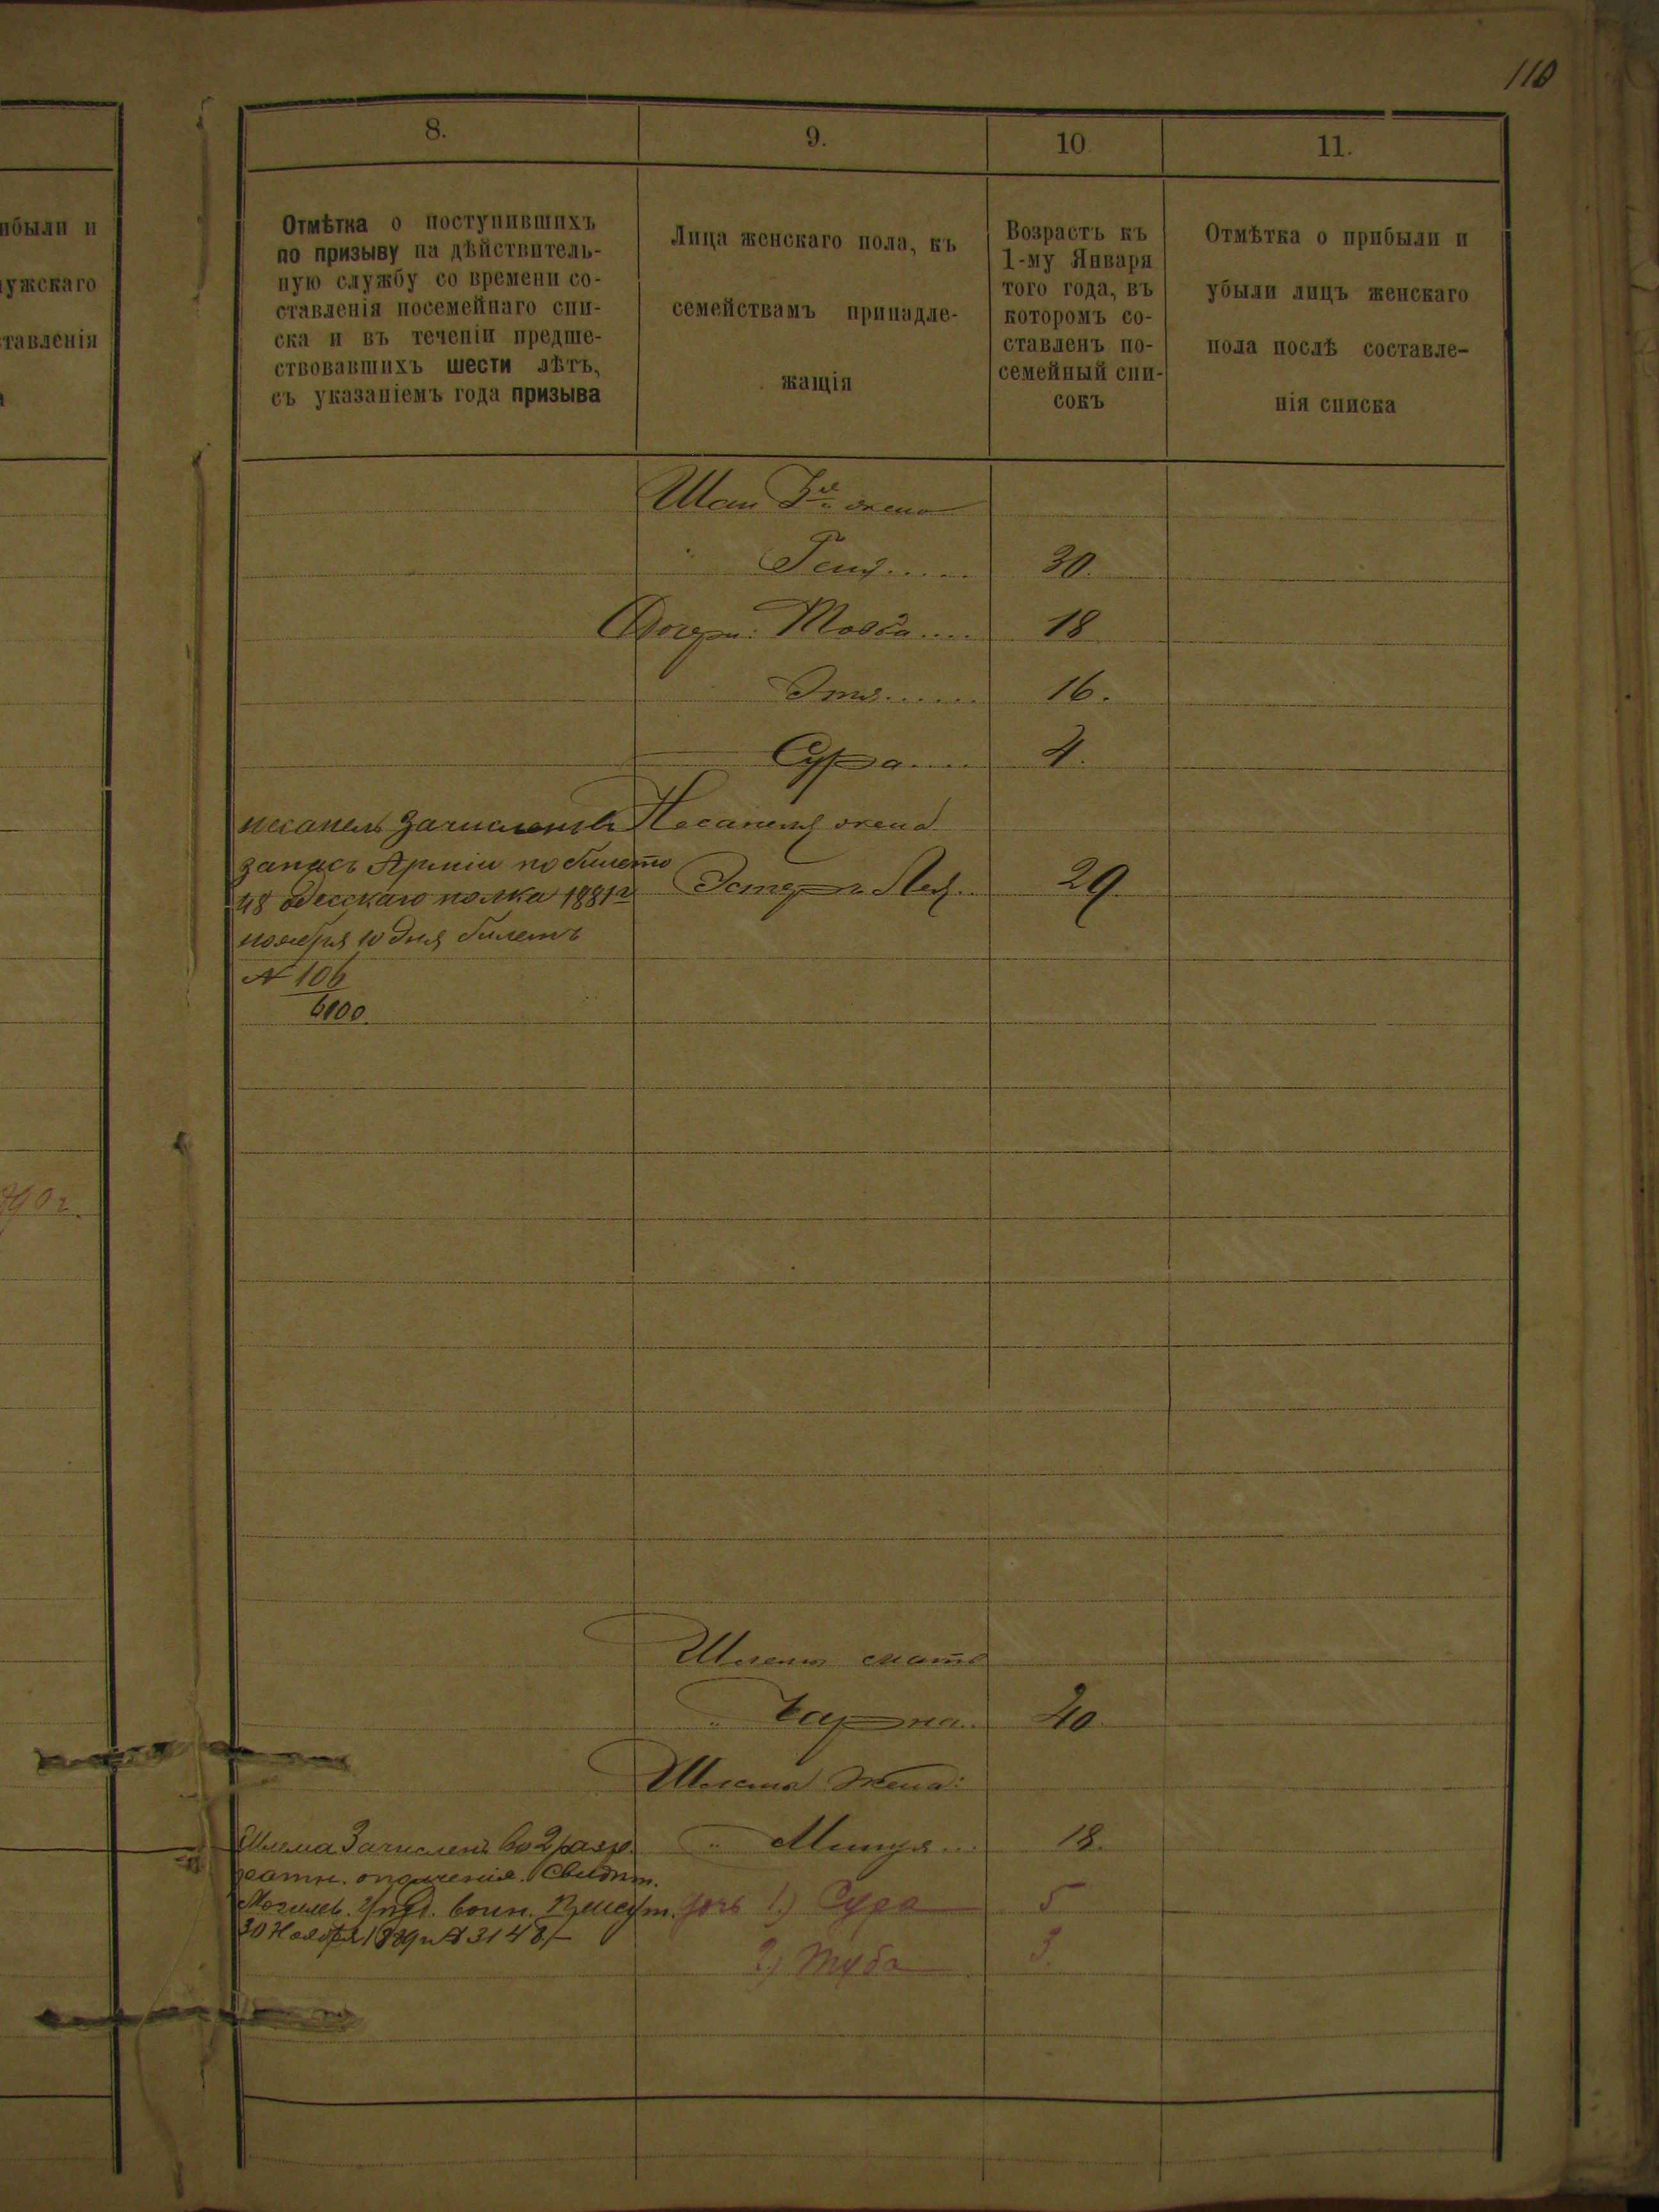 110
8.
9.
10
11.
ибыли и
ужскаго
тавленія
Отмѣтка о поступившихъ
по призыву на дѣйствитель-
ную службу со времени со-
ставленія посемейнаго спи-
ска и въ теченіи предше-
ствовавшихъ шести лѣтъ,
съ указаніемъ года призыва
Лица женскаго пола, къ
семействамъ принадле-
жащія
Возрастъ къ
1-му Января
того года, въ
которомъ со-
ставленъ по-
семейный спи-
сокъ
Отмѣтка о прибыли и
убыли лицъ женскаго
пола послѣ составле-
нія списка
жена
30.
Дочери: Товба.... 18
Этя...... 16.
Сура.... 4.
жена
Эстеръ Лея. 29
зачисленъ въ
запасъ Арміи по билету
48 одесскаго полка 1881 г
ноября 10 дня билетъ
№ 106
6100.
90 г.
мать
Чарна.. 40.
жена:
18.
Шлема Зачисленъ во 2 разр.
ратн. ополченія. Свидѣт.
Могилев. воин. Присут.
30 Ноября № 3148/-
дочь 1.) Сура 5
2.) Туба 3.